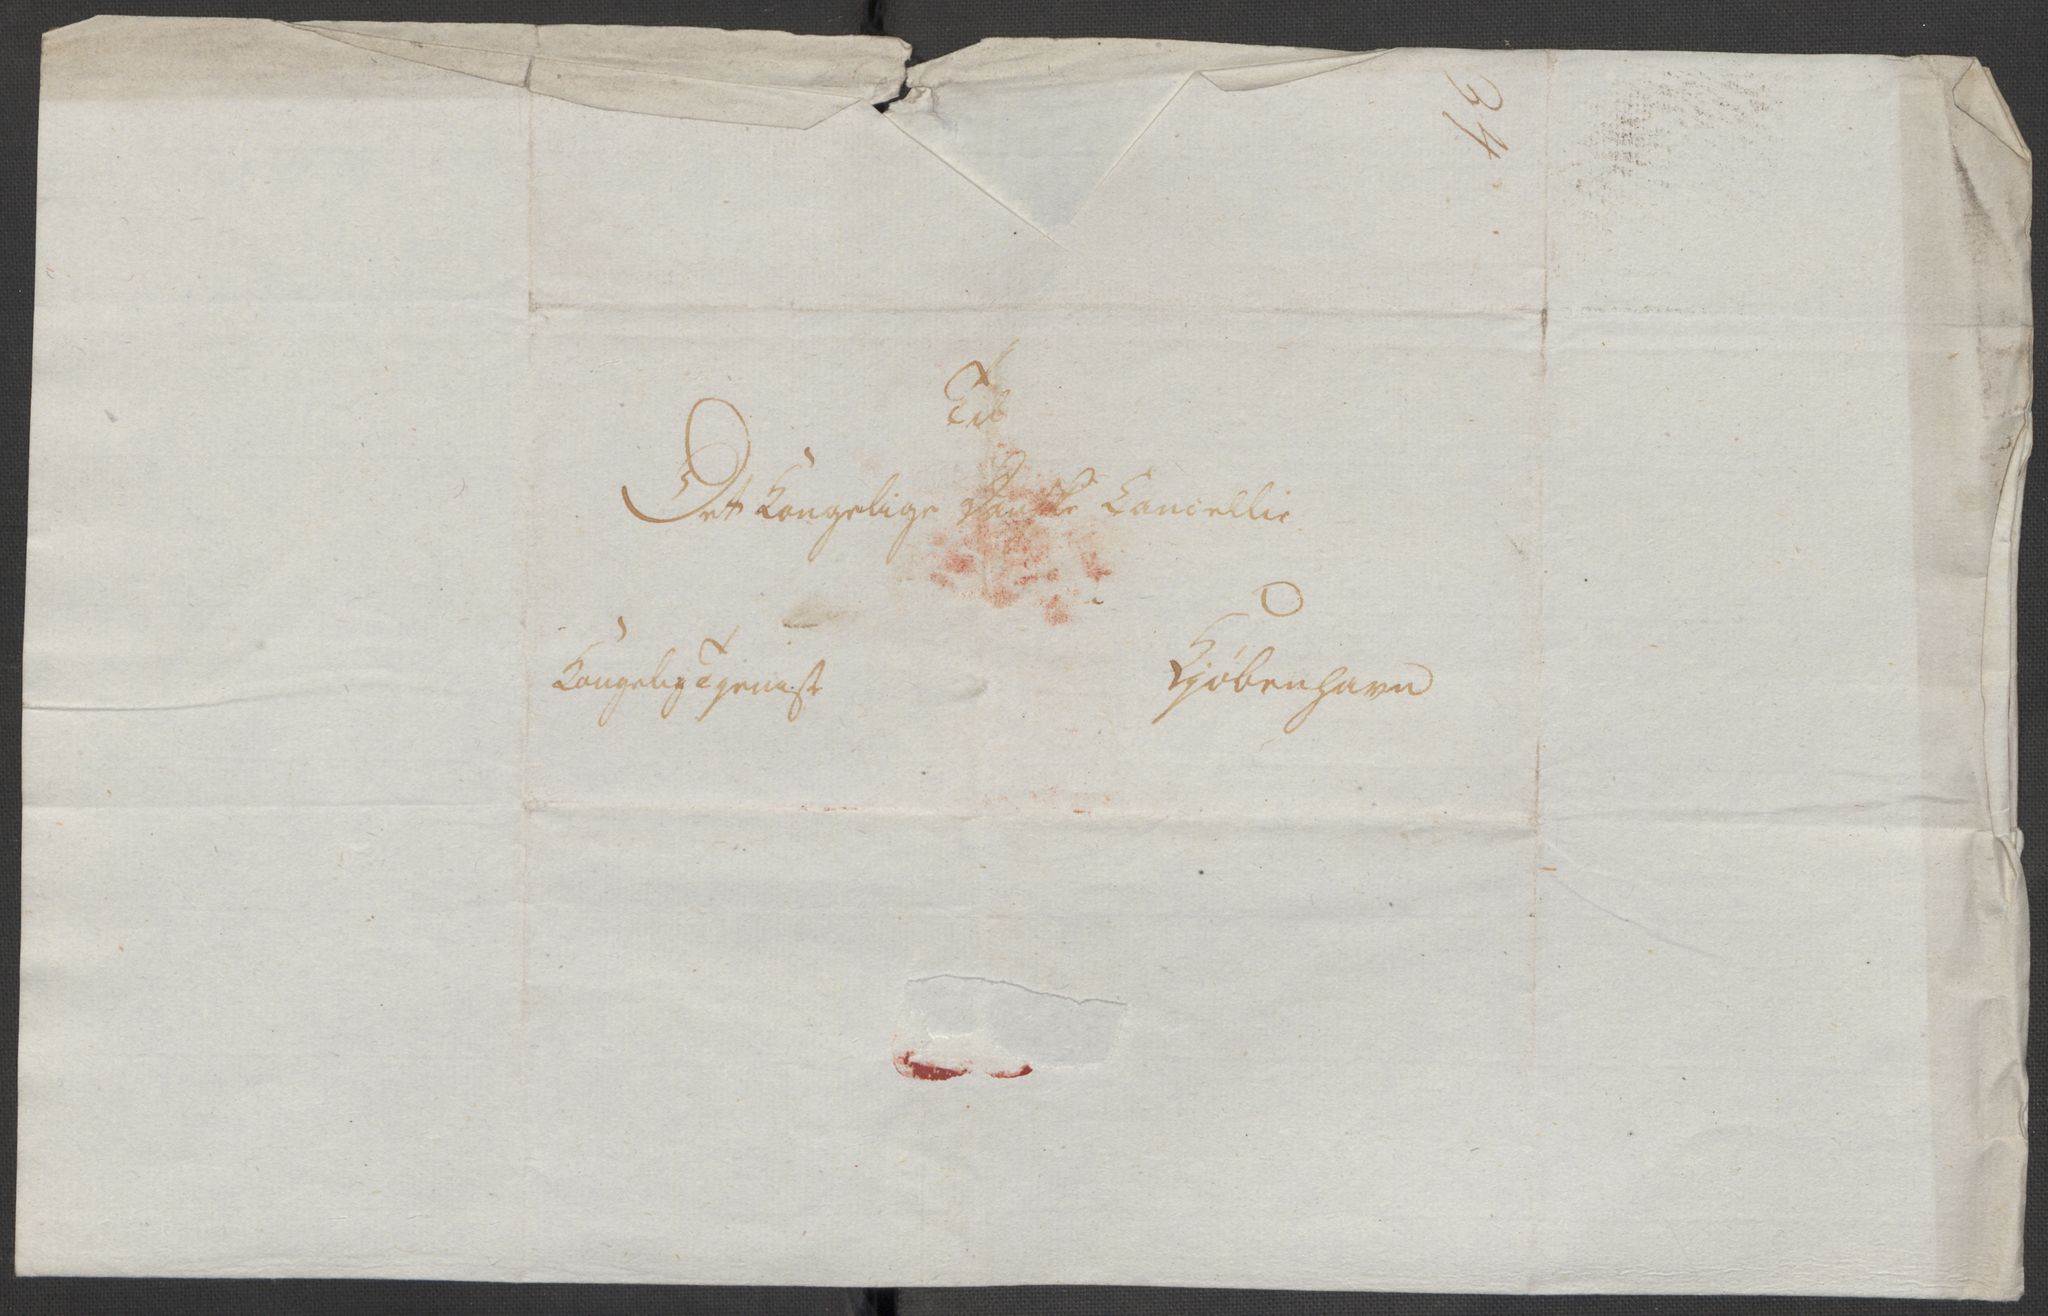 34
Til
Dett Kongelige Danske Cancellie
Kongelig Tjeneste Kjøbenhavn